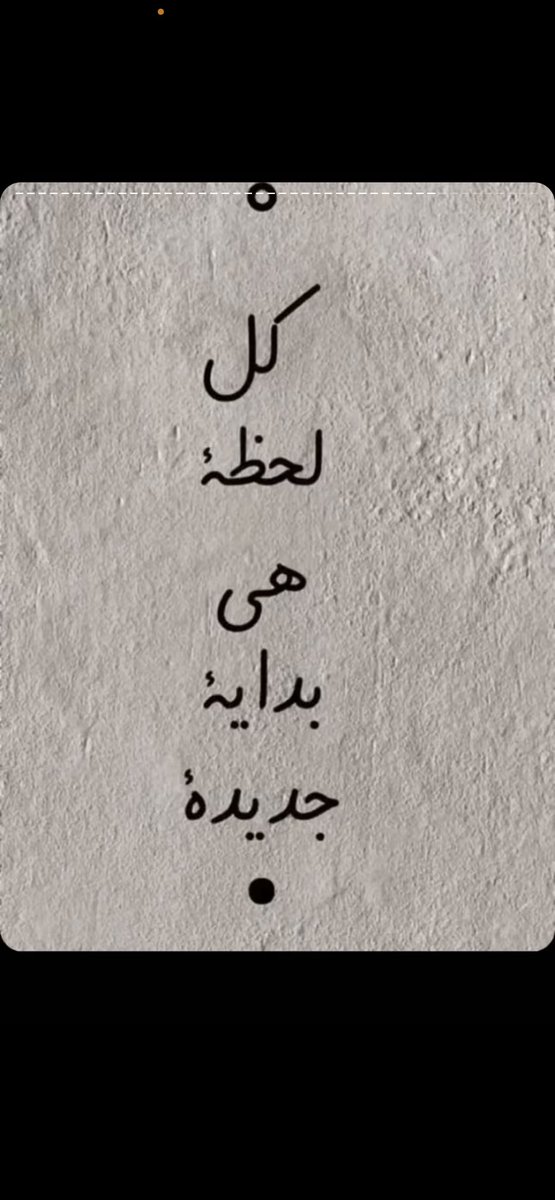 كل
لحظۂ
هى
بدايۂ
جديدۂ